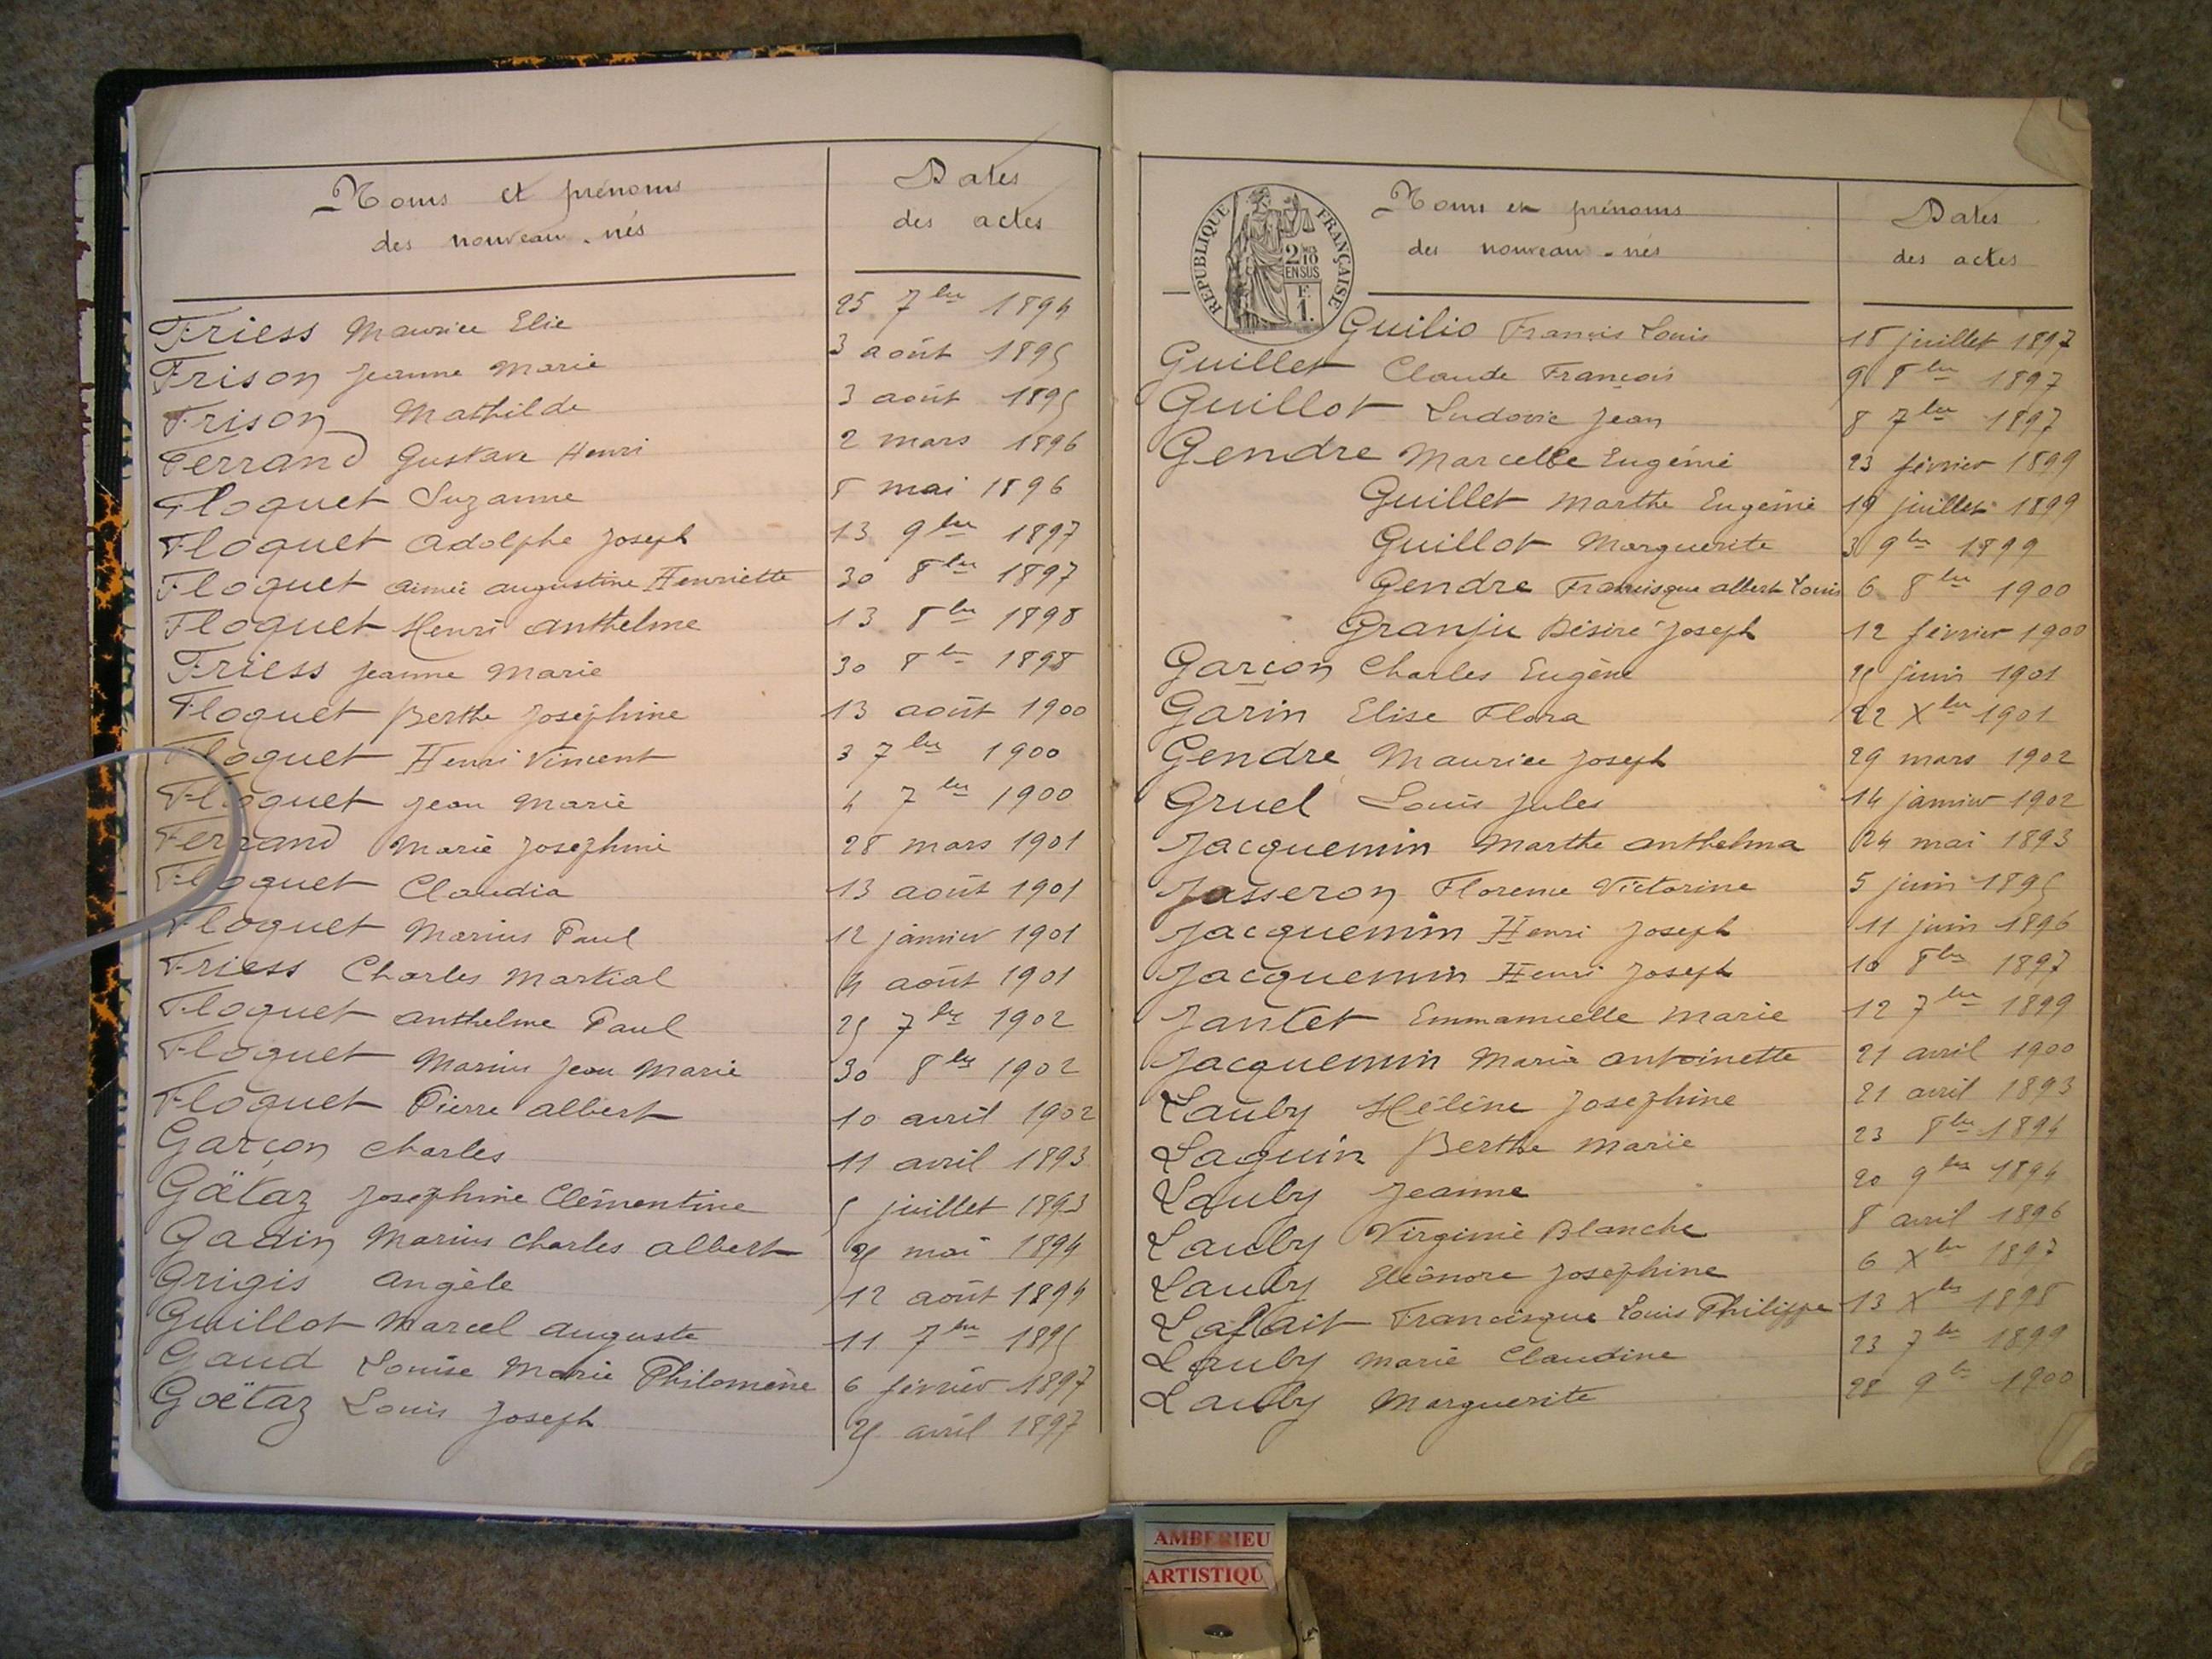 Noms et prénoms
des nouveau-nés
Dates
des actes
Friess Maurice Elie 25 7bre 1894
Frison Jeanne Marie 3 août 1895
Frison Mathilde 3 août 1895
Ferrand Gustave Henri 2 mars 1896
Floquet Suzanne 8 mai 1896
Floquet Adolphe Joseph 13 9bre 1897
Floquet Aimée Augustine Henriette 30 8bre 1897
Floquet Henri Anthelme 13 8bre 1898
Friess Jeanne Marie 30 8bre 1898
Floquet Berthe Joséphine 13 août 1900
Floquet Henri Vincent 3 7bre 1900
Floquet Jean Marie 4 7bre 1900
Ferrand Marie Joséphine 28 mars 1901
Floquet Claudia 13 août 1901
Floquet Marius Paul 12 janvier 1901
Friess Charles Martial 4 août 1901
Floquet Anthelme Paul 25 7bre 1902
Floquet Marius Jean Marie 30 8bre 1902
Floquet Pierre Albert 10 avril 1902
Garçon Charles 11 avril 1893
Gaëtaz Joséphine Clémentine 5 juillet 1893
Gadin Marius Charles Albert mai 1894
Grigis Angèle 12 août 1894
Guillot Marcel Auguste 11 7bre 1895
Gaud Louise Marie Philomène 6 février 1897
Goëtaz Louis Joseph avril 1897
REPUBLIQUE FRANÇAISE
2/10
EN SUS
F.
1.
Noms et prénoms
des nouveau-nés
Dates
des actes
Guilio Francis Louis 18 juillet 1897
Guillet Claude François 9 8bre 1897
Guillot Ludovic Jean 8 7bre 1897
Gendre Marcelle Eugénie 23 février 1899
Guillet Marthe Eugénie 19 juillet 1899
Guillot Marguerite 3 9bre 1899
Gendre Francisque Albert Louis 6 8bre 1900
Granju Désiré Joseph 12 février 1900
Garçon Charles Eugène 25 juin 1901
Garin Elise Flora 22 Xbre 1901
Gendre Maurice Joseph 29 mars 1902
Gruel Louis Jules 14 janvier 1902
Jacquemin Marthe Anthelma 24 mai 1893
Jasseron Florence Victorine 5 juin 1895
Jacquemin Henri Joseph 11 juin 1896
Jacquemin Henri Joseph 10 8bre 1897
Jantet Emmanuelle Marie 12 7bre 1899
Jacquemin Maria Antoinette 21 avril 1900
Lauby Hélène Joséphine 21 avril 1893
Laguin Berthe Marie 23 8bre 1894
Lauby Jeanne 20 9bre 1894
Lauby Virginie Blanche 8 avril 1896
Lauby Eléonore Joséphine 6 Xbre 1897
Laflait Francisque Louis Philippe 13 Xbre 1898
Lauby Marie Claudine 23 7bre 1899
Lauby Marguerite 28 9bre 1900
AMBERIEU
ARTISTIQU